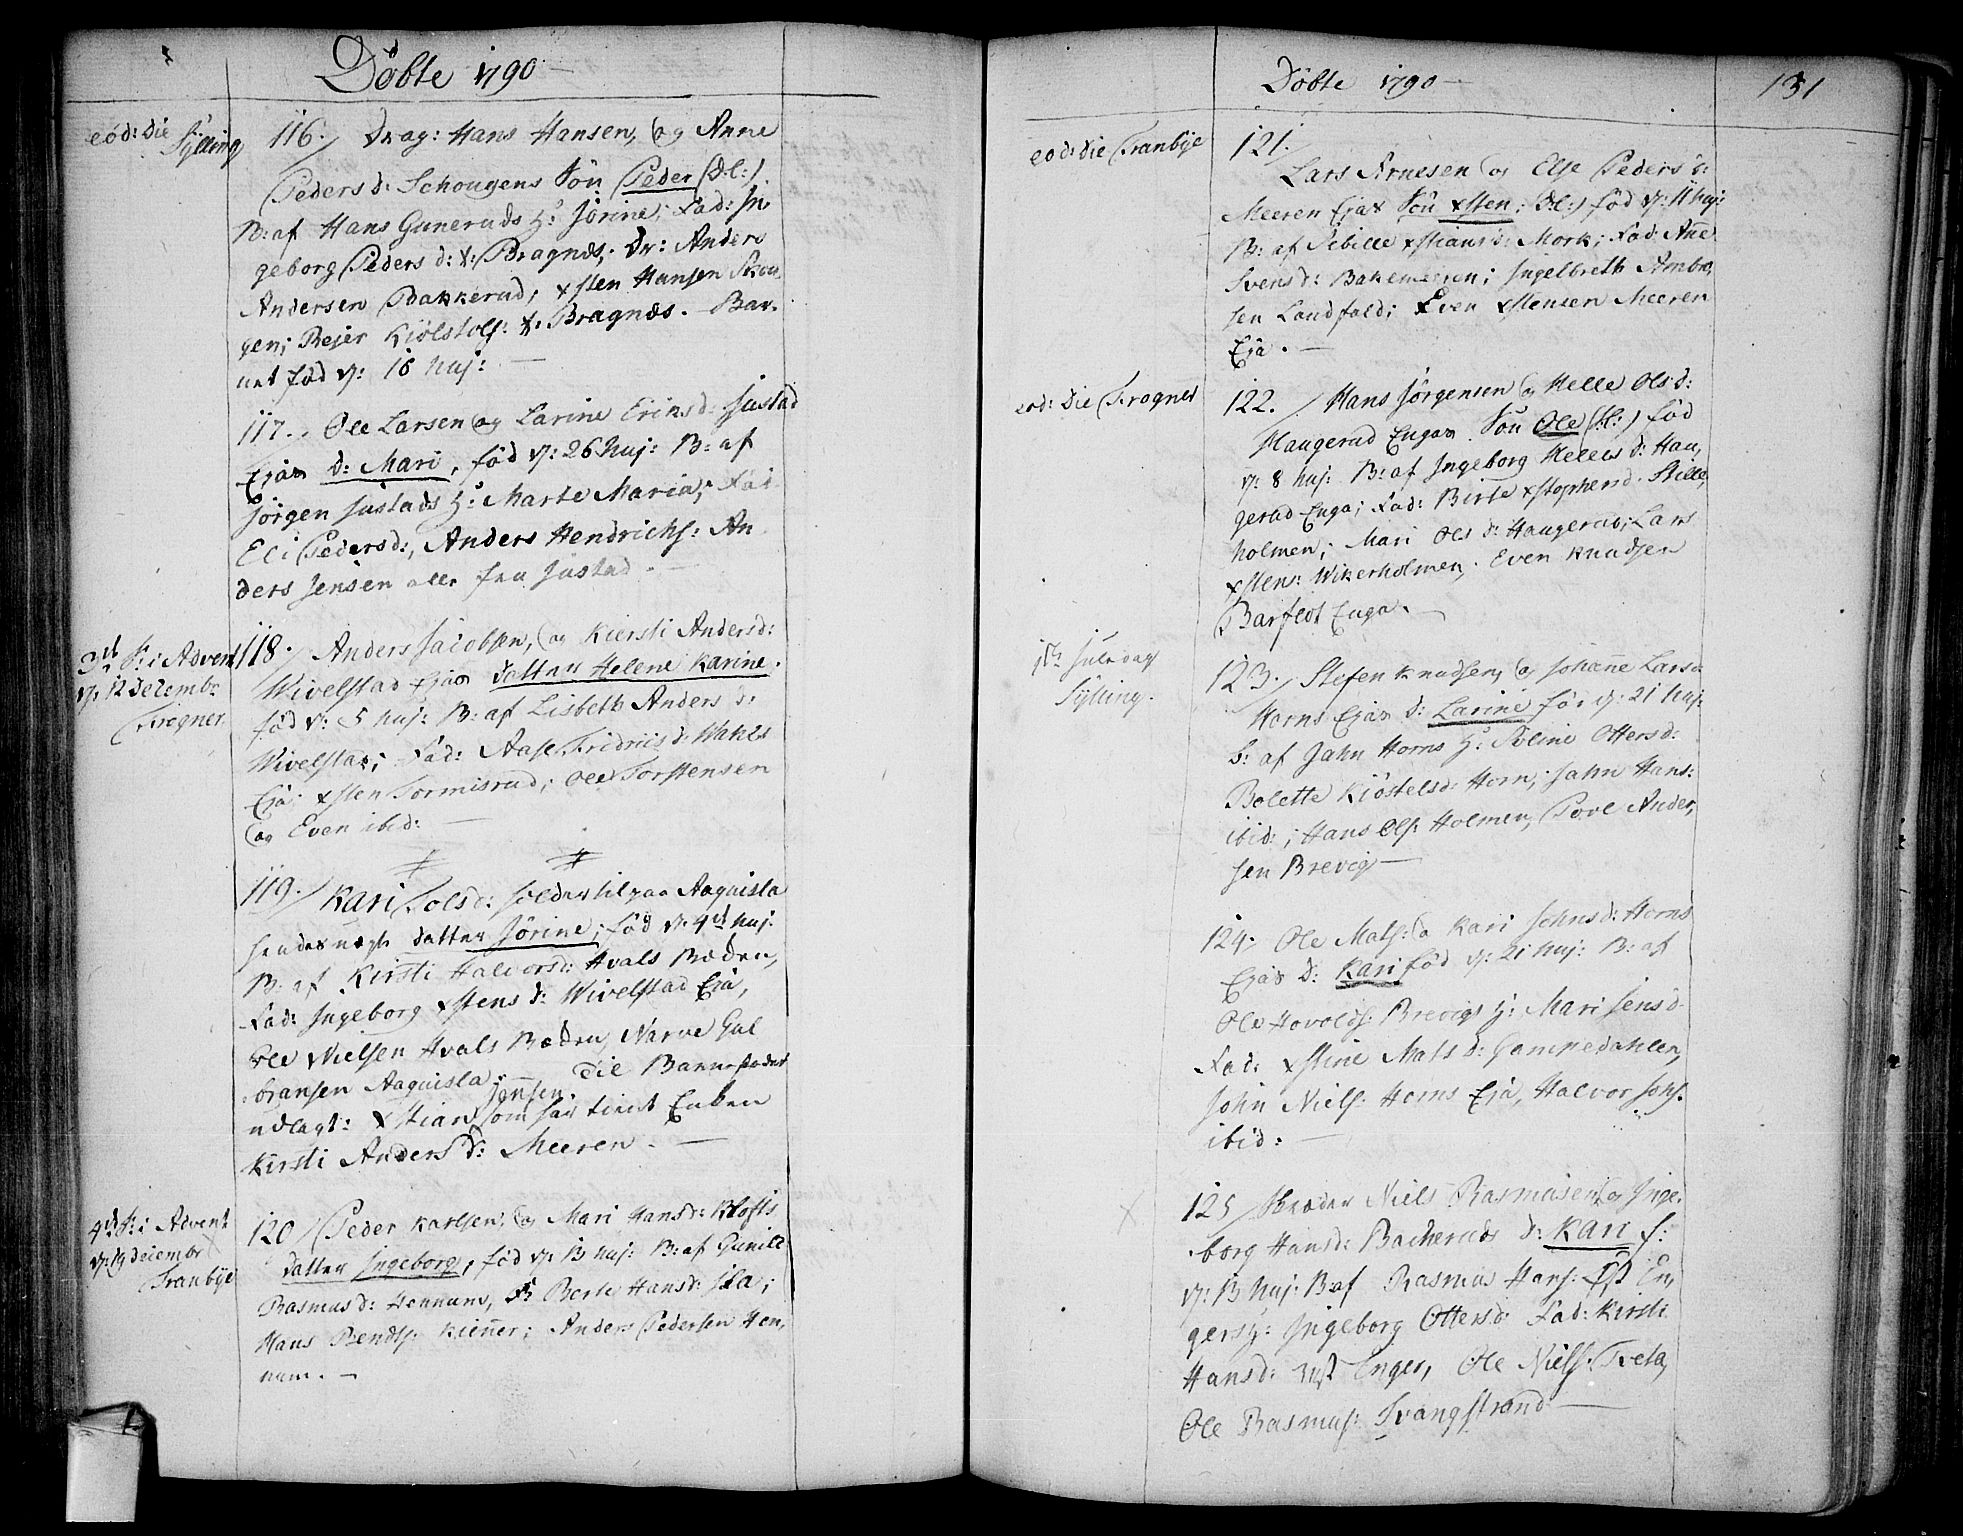 Döbte 1790
eod: die Sylling
116./ Drag: Hans Hansen, og Anne
Peders d: Schougens Sön Peder (Dl:)
B: af Hans Gunerads H: Jörine; Fad: In,
geborg Peders d: Bragnæs; Dr: Anders
Andersen Bakkerud; xsten Hansen
gen; Rejer Kiölstols: Bragnæs. Bar-
net föd d: 18 huj:
117. Ole Larsen og Larine Eriksd: Justad
Ejar d: Mari, föd d: 26 huj: B: af
Jörgen Justads H: Marte Maria; Fad:
Eli Pedersd:, Anders Hendrichs: An
ders Jensen alle fra Justad.
3die S: i Advent
d: 12 Decembr
Frogner.
118./ Anders Jacobsen, og Kiersti Andersd:
Wivelstad Ejar datter Helene Karine.
föd d: 5 huj: B: af Lisbeth Anders d:
Wivelstad; Fad: Aase Fridriis d: Wahls
Eja; xsten Tormisrud; Ole Torstensen
og Even ibid:
119./ Kari Tolsd: paa Aaquisla
datter Jörine; föd d: 4de huj:
B: af Kirsti Halvorsd: Hvals Bæden,
Fad: Ingeborg xstens d: Wivelstad Eja,
Ole Nielsen Hvals Bæden, Narve Gul
bransen Aaquisla. Til Barnefader
udlagt: xstian Jensen som har tient Enken
Kirsti Anders d: Meeren.
4de S: i Advent
d: 19 Decembr
Tranbye
120/ Peder Karlsen, og Mari Hansd: Klofts
datter Ingeborg, föd d: 13 huj: B: af Gunild
Rasmusd: Hennums, F: Berte Hansd: ;
Hans Bendts: Kienner; Anders Pedersen Hen,
num.
Döbte 1790
131
eod: die Tranbye
121.
Lars Arnesen og Else Peders d:
Meeren Ejar Sön xsten; (Dl:) föd d: 11 huj:
B: af Sibille xstians d: Mork; Fad: Ane
Svens d: Bakemeeren; Ingelbreth Ambro,
sen Landfald; Even xstensen Meeren
Eja.
eod: die Frogner
122./ Hans Jörgensen og Helle Ols d:
Haugerud Engar Sön Ole (Dl:) föd
d: 8 huj: B: af Ingeborg Helles d: Hau,
gerud Enga; Fad: Birte xstophersd: Stille,
holmen; Mari Ols d: Haugerud; Lars
xstens: Wikerholmen; Even Knudsen
Barflot Enga.
1ste Juledag
Sylling.
123./ Stefen Knudsen, og Johanne Larsd:
Horns Ejar d: Larine föd d: 21 huj:
b: af Jahn Horns H: Séline Ottersd:
Bolette Kiöstelsd: Horn; Jahn Hans:
ibid:; Hans Ols: Holmen, Povl Ander,
sen Brevig
124. Ole Mats: og Kari Johns d: Horns
Ejar d: Kari föd d: 21 huj: B: af
Ole Hovolds: Brevigs H: Mari Jens d:
Fad: xstine Mats d: Gampedahlen,
John Niels: Horns Eja, Halvor Jens:
ibid:
125/ Niels Rasmusen, og Inge,
borg Hansd: Bacheruds d: Kari f:
d: 13 huj: B: af Rasmus Hans: Øst En,
gers H: Ingeborg Ottersd: Fad: Kirsti
Hansd: Enger, Ole Niels: Tveta,
Ole Rasmus: Svangstrand